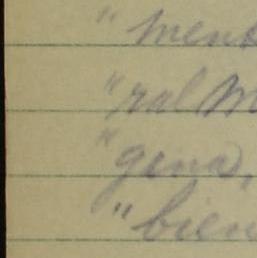 "ment
"ral M
"gena,
"bien